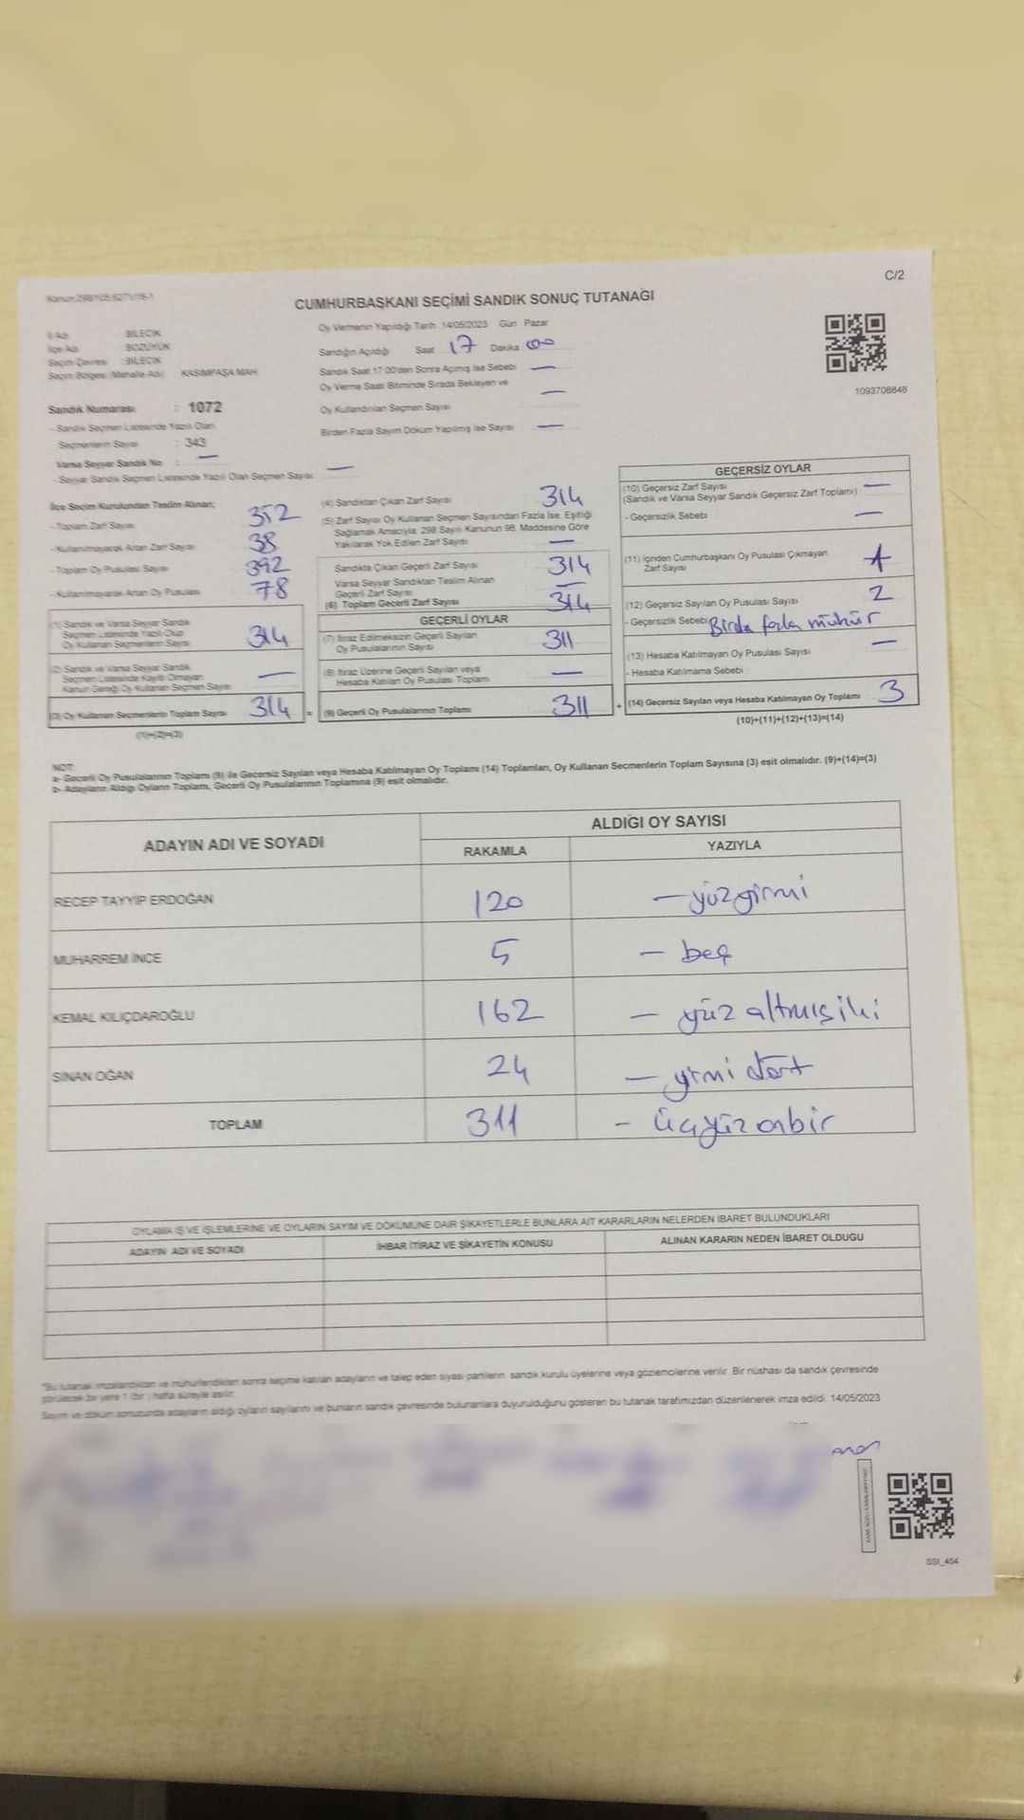 C/2
Kanun:298/105
CUMHURBAŞKANI SEÇİMİ SANDIK SONUÇ TUTANAĞI
İli Adı BİLECİK
İlçe Adı BOZÜYÜK
Seçim Çevresi :BİLECİK
Seçim Bölgesi (Mahalle Adı) KASIMPAŞA MAH
Oy Vermenin Yapıldığı Tarih 14/05/2023 Gün Pazar
Sandığın Açıldığı Saat 17 Dakika 00
Sandık Saat 17.00'den Sonra Açılmış İse Sebebi —
Oy Verme Saati Bitiminde Sırada Bekleyen ve
Oy Kullandırılan Seçmen Sayısı —
Birden Fazla Sayım Döküm Yapılmış İse Sayısı —
1093708848
Sandık Numarası : 1072
- Sandık Seçmen Listesinde Yazılı Olan
Seçmenlerin Sayısı : 343
Varsa Seyyar Sandık No : —
- Seyyar Sandık Seçmen Listesinde Yazılı Olan Seçmen Sayısı —
İlçe Seçim Kurulundan Teslim Alınan;
- Toplam Zarf Sayısı 352
- Kullanılmayarak Artan Zarf Sayısı 38
- Toplam Oy Pusulası Sayısı 392
- Kullanılmayarak Artan Oy Pusulası 78
(1) Sandık ve Varsa Seyyar Sandık
Seçmen Listesinde Yazılı Olup
Oy Kullanan Seçmenlerin Sayısı 314
(2) Sandık ve Varsa Seyyar Sandık
Seçmen Listesinde Kayıtlı Olmayan
Kanun Gereği Oy Kullanan Seçmen Sayısı —
(3) Oy Kullanan Seçmenlerin Toplam Sayısı 314 =
(1)+(2)=(3)
(4) Sandıktan Çıkan Zarf Sayısı 314
(5) Zarf Sayısı Oy Kullanan Seçmen Sayısından Fazla İse, Eşitliği
Sağlamak Amacıyla; 298 Sayılı Kanunun 98. Maddesine Göre
Yakılarak Yok Edilen Zarf Sayısı —
Sandıkta Çıkan Geçerli Zarf Sayısı 314
Varsa Seyyar Sandıktan Teslim Alınan
Geçerli Zarf Sayısı —
(6) Toplam Geçerli Zarf Sayısı 314
GEÇERLİ OYLAR
(7) İtiraz Edilmeksizin Geçerli Sayılan
Oy Pusulalarının Sayısı 311
(8) İtiraz Üzerine Geçerli Sayılan veya
Hesaba Katılan Oy Pusulası Toplamı —
(9) Geçerli Oy Pusulalarının Toplamı 311 +
GEÇERSİZ OYLAR
(10) Geçersiz Zarf Sayısı —
(Sandık ve Varsa Seyyar Sandık Geçersiz Zarf Toplamı)
- Geçersizlik Sebebi —
(11) İçinden Cumhurbaşkanı Oy Pusulası Çıkmayan
Zarf Sayısı 1
(12) Geçersiz Sayılan Oy Pusulası Sayısı 2
- Geçersizlik Sebebi Birde fazla mühür
(13) Hesaba Katılmayan Oy Pusulası Sayısı —
- Hesaba Katılmama Sebebi
(14) Geçersiz Sayılan veya Hesaba Katılmayan Oy Toplamı 3
(10)+(11)+(12)+(13)=(14)
NOT:
a- Geçerli Oy Pusulalarının Toplamı (9) ile Geçersiz Sayılan veya Hesaba Katılmayan Oy Toplamı (14) Toplamları, Oy Kullanan Seçmenlerin Toplam Sayısına (3) eşit olmalıdır. (9)+(14)=(3)
b- Adayların Aldığı Oyların Toplamı, Geçerli Oy Pusulalarının Toplamına (9) eşit olmalıdır.
ADAYIN ADI VE SOYADI
ALDIĞI OY SAYISI
RAKAMLA YAZIYLA
RECEP TAYYİP ERDOĞAN 120 — yüzgirmi
MUHARREM İNCE 5 — beş
KEMAL KILIÇDAROĞLU 162 — yüz altmışiki
SİNAN OĞAN 24 — yirmi dört
TOPLAM 311 - üçyüzonbir
OYLAMA İŞ VE İŞLEMLERİNE VE OYLARIN SAYIM VE DÖKÜMÜNE DAİR ŞİKAYETLERLE BUNLARA AİT KARARLARIN NELERDEN İBARET BULUNDUKLARI
ADAYIN ADI VE SOYADI İHBAR İTİRAZ VE ŞİKAYETİN KONUSU ALINAN KARARIN NEDEN İBARET OLDUĞU
*Bu tutanak imzalandıktan ve mühürlendikten sonra seçime katılan adayların ve talep eden siyasi partilerin, sandık kurulu üyelerine veya gözlemcilerine verilir. Bir nüshası da sandık çevresinde
görülecek bir yere 1 (bir ) hafta süreyle asılır.
Sayım ve döküm sonucunda adayların aldığı oyların sayılarını ve bunların sandık çevresinde bulunanlara duyurulduğunu gösteren bu tutanak tarafımızdan düzenlenerek imza edildi. 14/05/2023
SSI_464